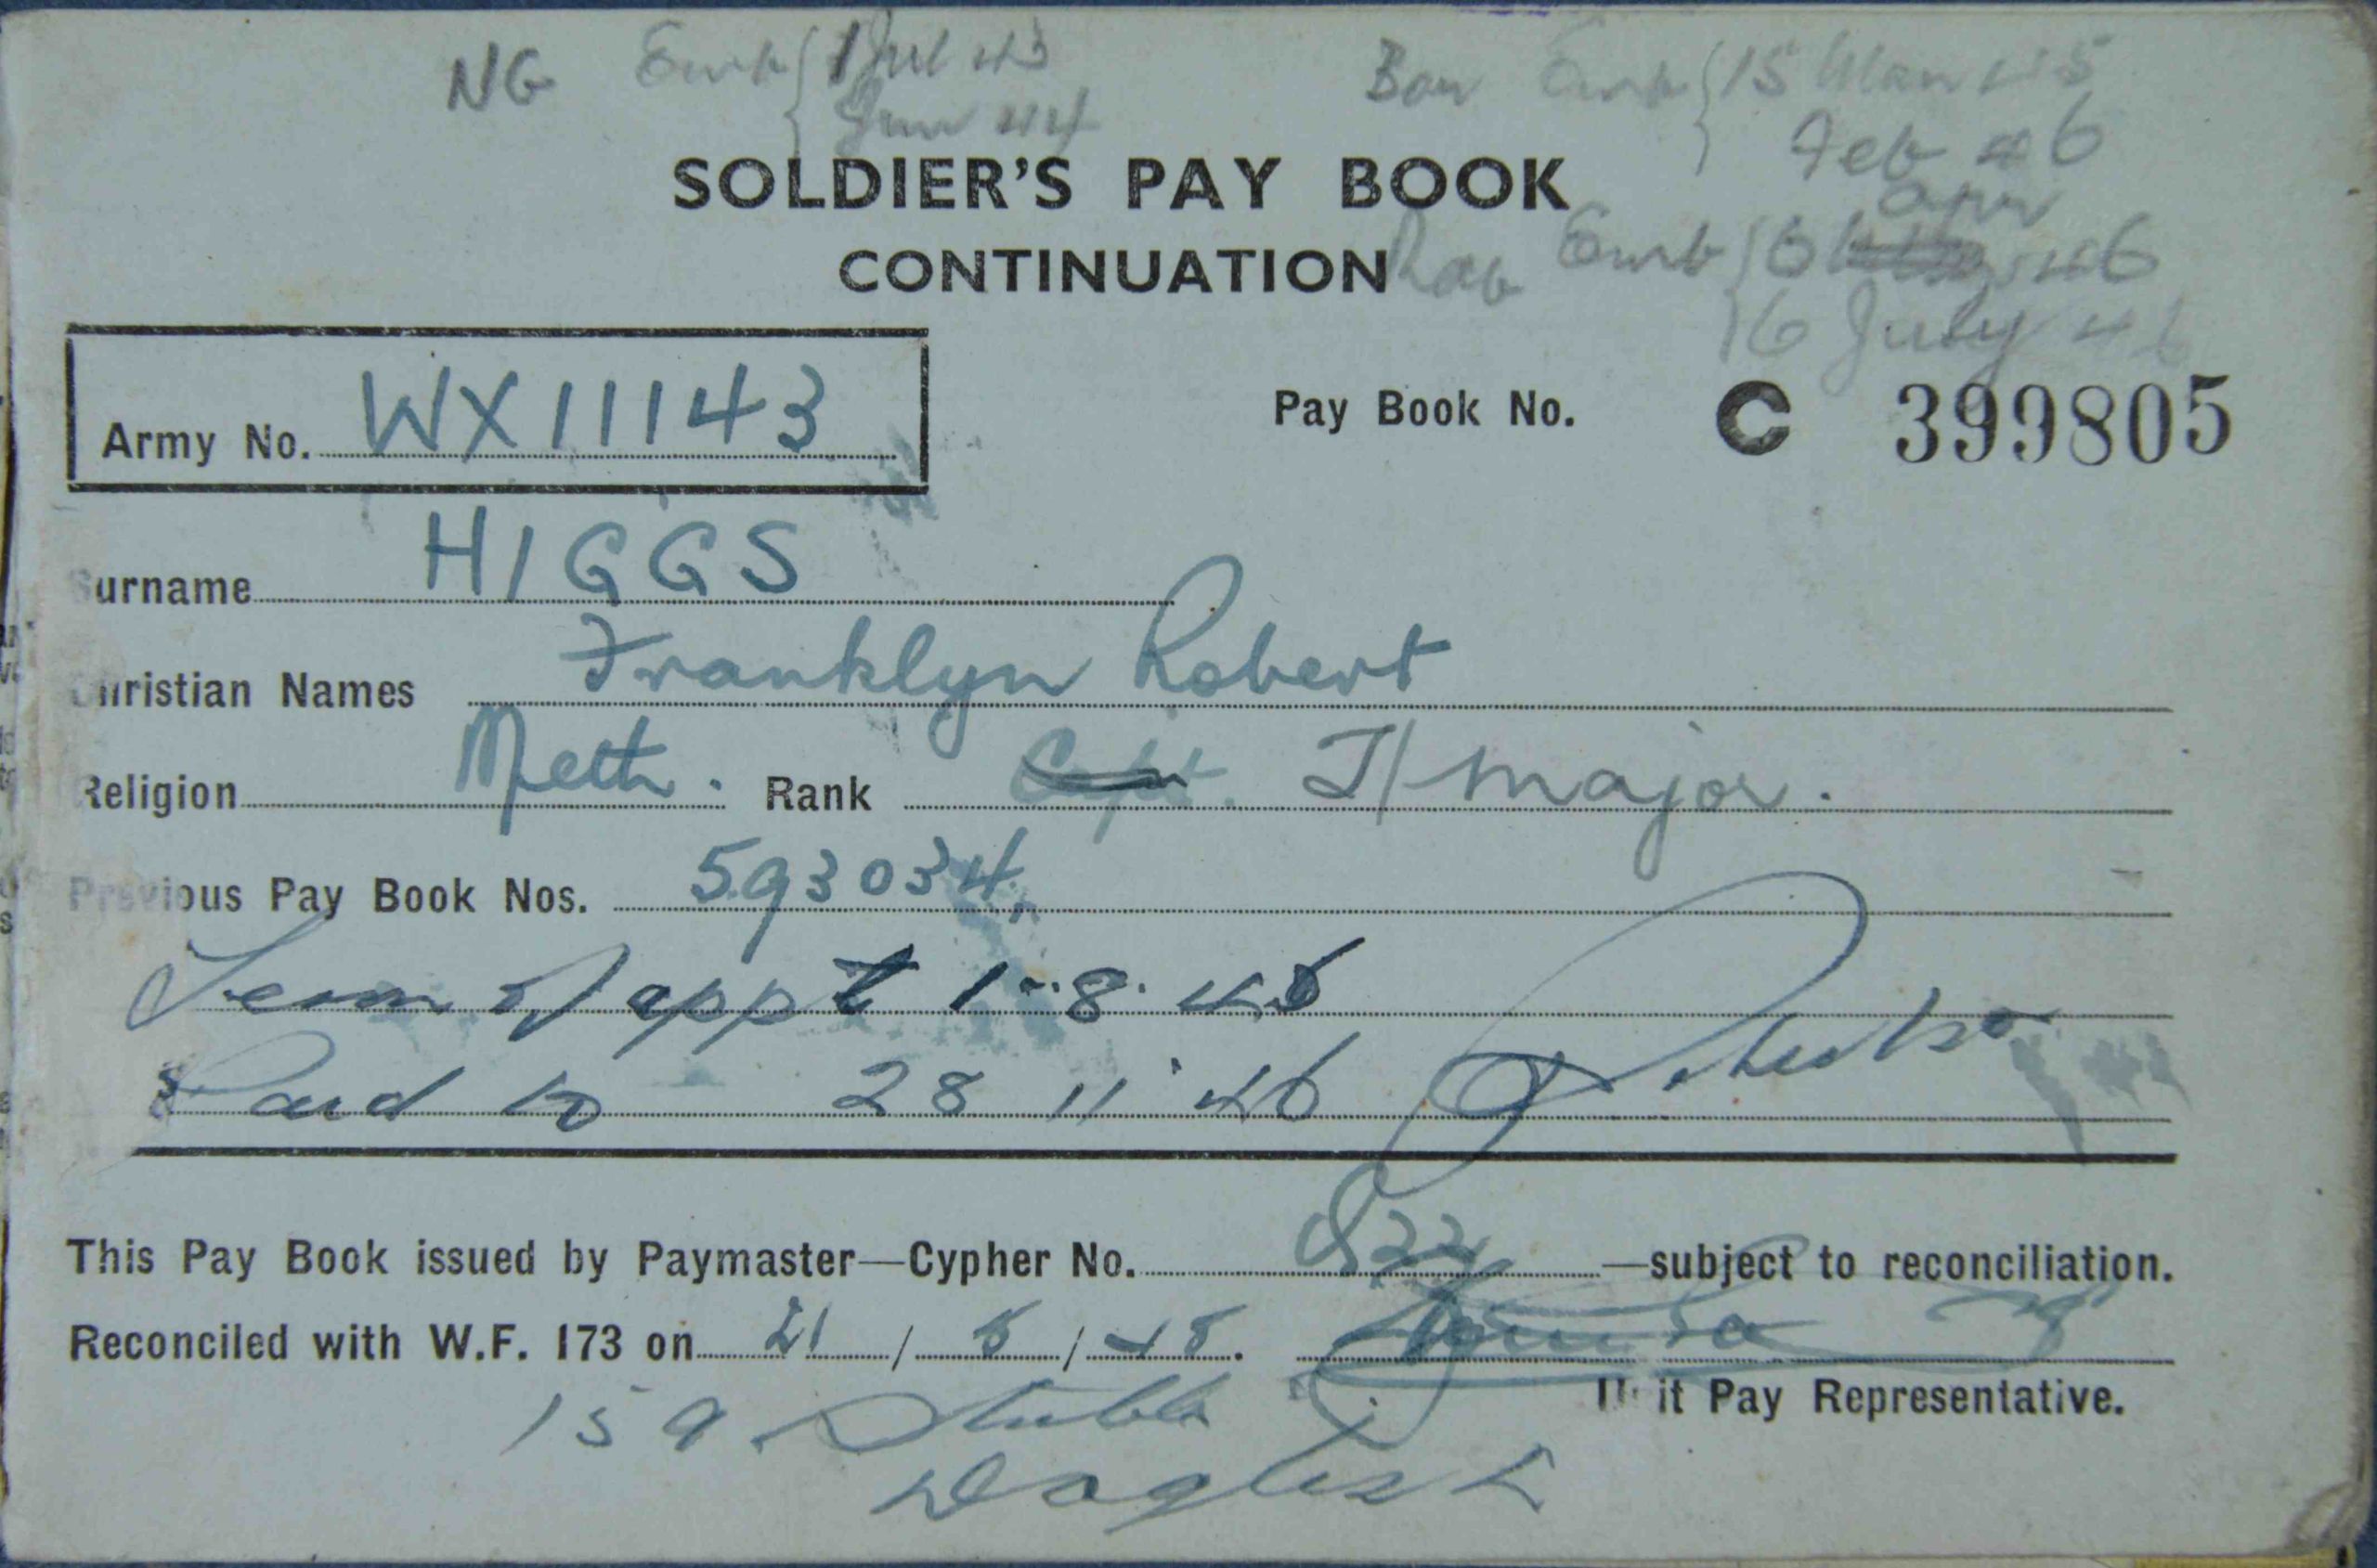 NG Emb { 1 Jul 43 Bou Emb { 15 Mar 45
Jan 44 Feb 46
SOLDIER'S PAY BOOK
Apr
CONTINUATION Rab Emb { 6 46
16 July 46
Army No. WX11143 Pay Book No. C 399805
Surname HIGGS
Christian Names Franklyn Robert
Religion Meth. Rank Capt. T/Major.
Previous Pay Book Nos. 593034
Term of appt 1.8.46
Paid to 28 11 46
This Pay Book issued by Paymaster—Cypher No. 822 —subject to reconciliation.
Reconciled with W.F. 173 on 21 / 5 / 45.
Unit Pay Representative.
159 Stubbs
Daglish